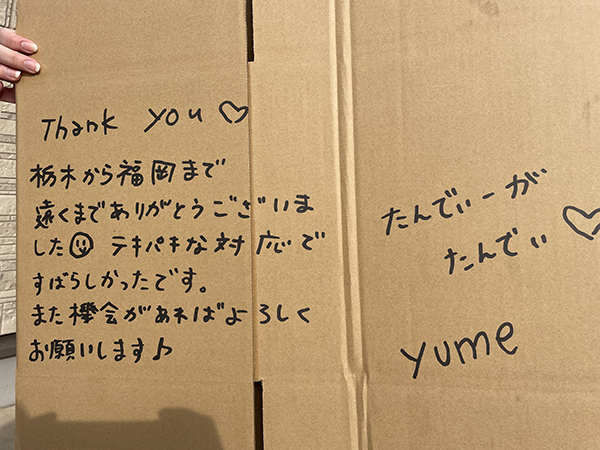 Thank you♡
栃木から福岡まで
遠くまでありがとうございま
した☺ テキパキな対応で
すばらしかったです。
また機会があればよろしく
お願いします♪
たんでぃーが
たんでぃ♡
yume